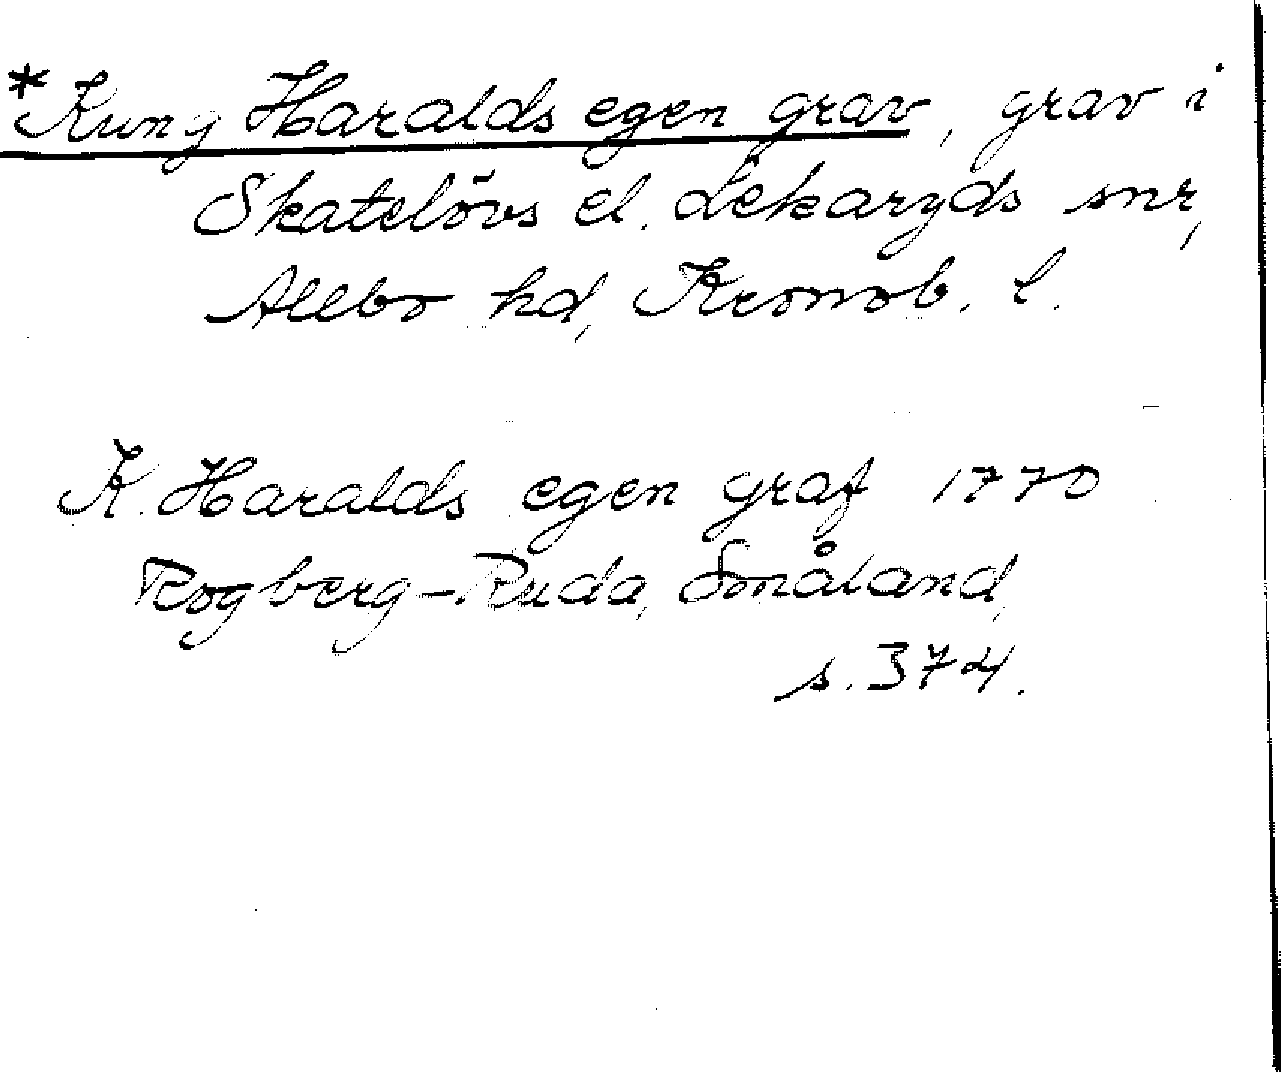 *Kung Haralds egen grav, grav i
Skatelövs el. Lekaryds snr,
Allbo hd, Kronob. l.
K. Haralds egen graf 1770
Rogberg-Ruda, Småland,
s. 374.